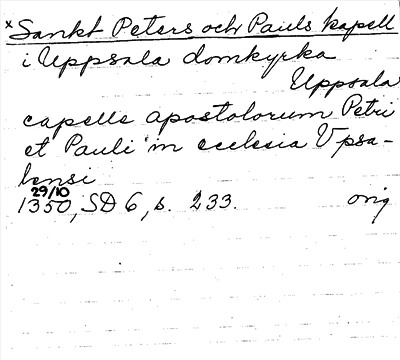 × Sankt Peters och Pauls kapell
i Uppsala domkyrka
Uppsala
capelle apostolorum Petri
et Pauli in ecclesia Vpsa-
lensi
29/10
1350, SD 6, s. 233. orig